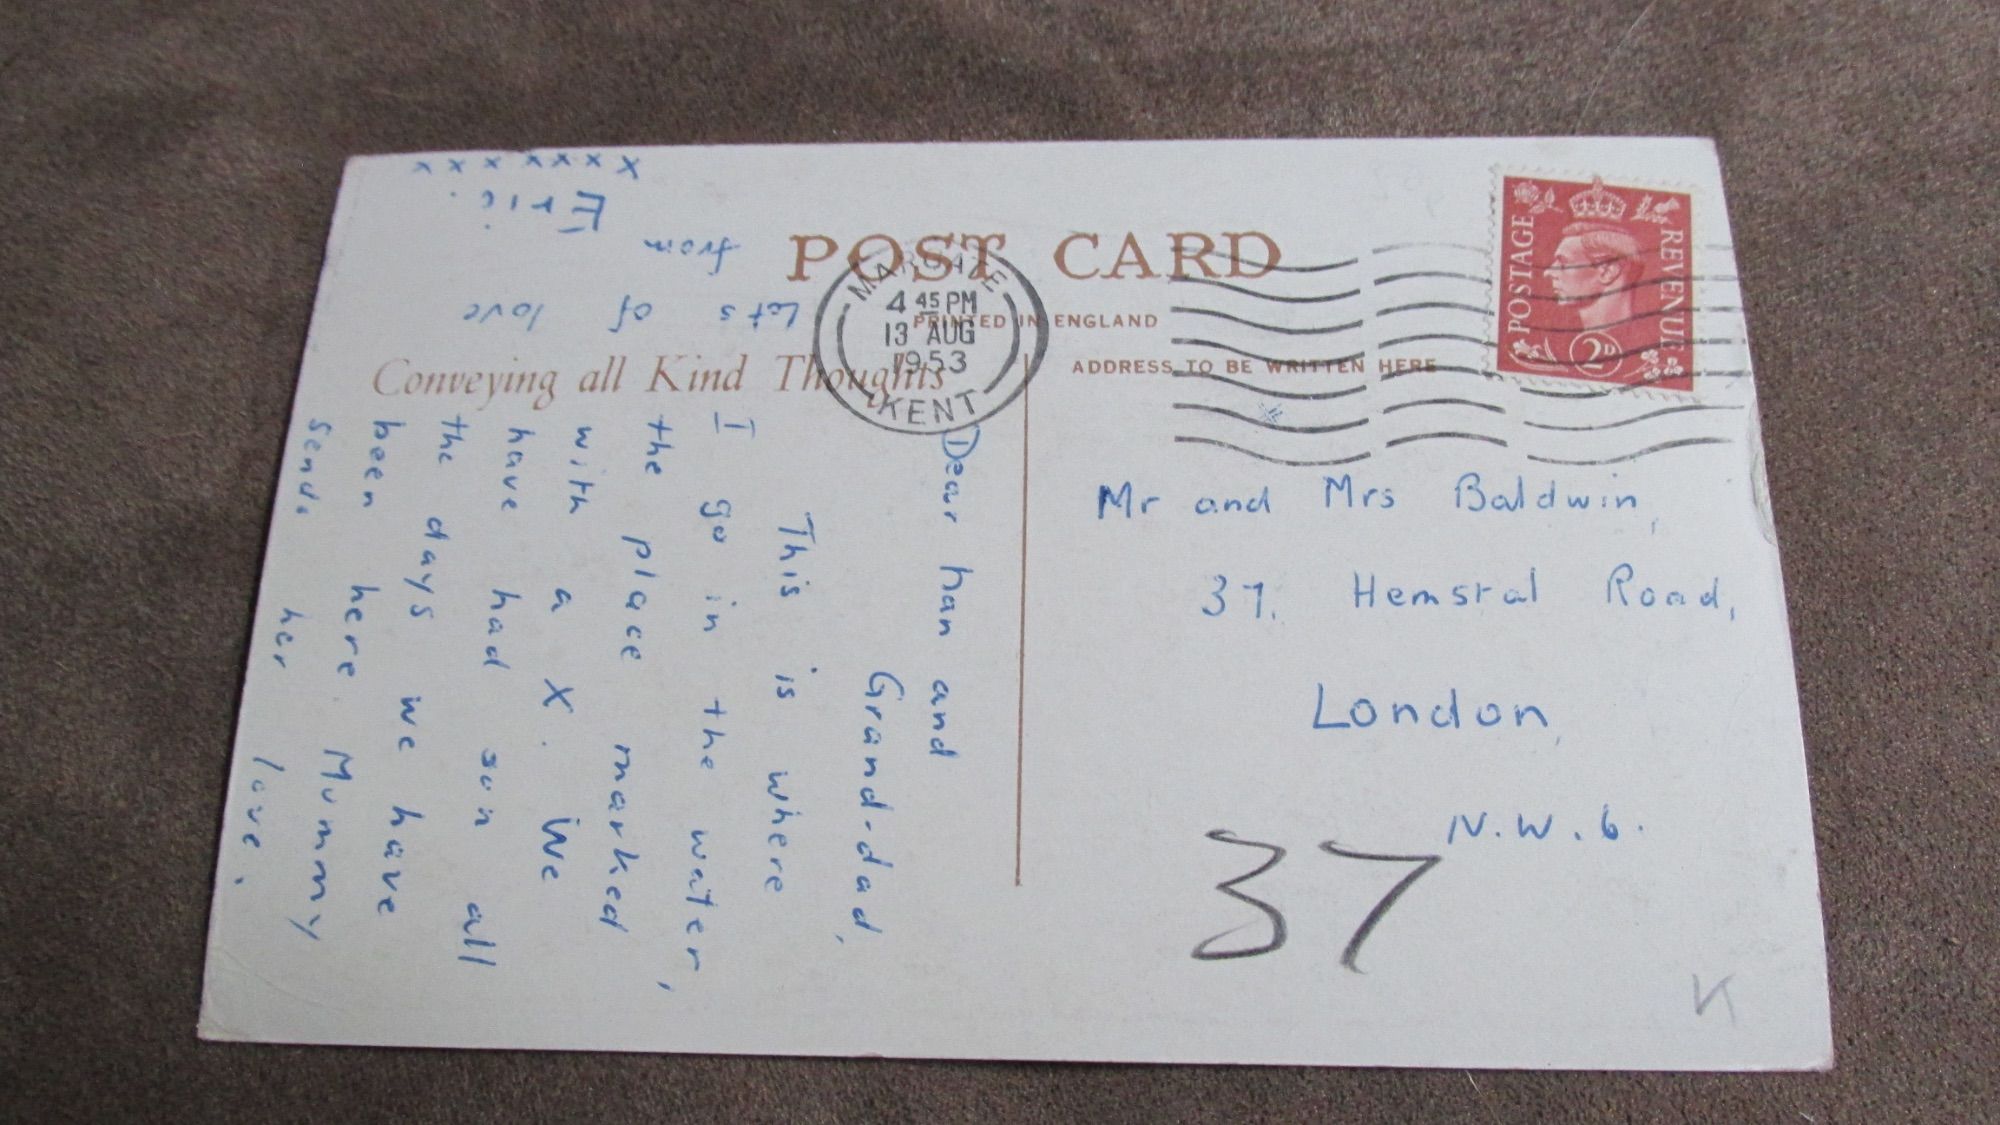 POST CARD
PRINTED IN ENGLAND
Conveying all Kind Thoughts
ADDRESS TO BE WRITTEN HERE
MARGATE
4 45 PM
13 AUG
1953
KENT
POSTAGE
REVENUE
2D
Dear nan and
Grand-dad,
This is where
I go in the water,
the place marked
with a X. We
have had sun all
the days we have
been here. Mummy
sends her love.
Lots of love
from
Eric.
x x x x x x x
Mr and Mrs Baldwin,
37. Hemstal Road,
London,
N.W.6.
37
K